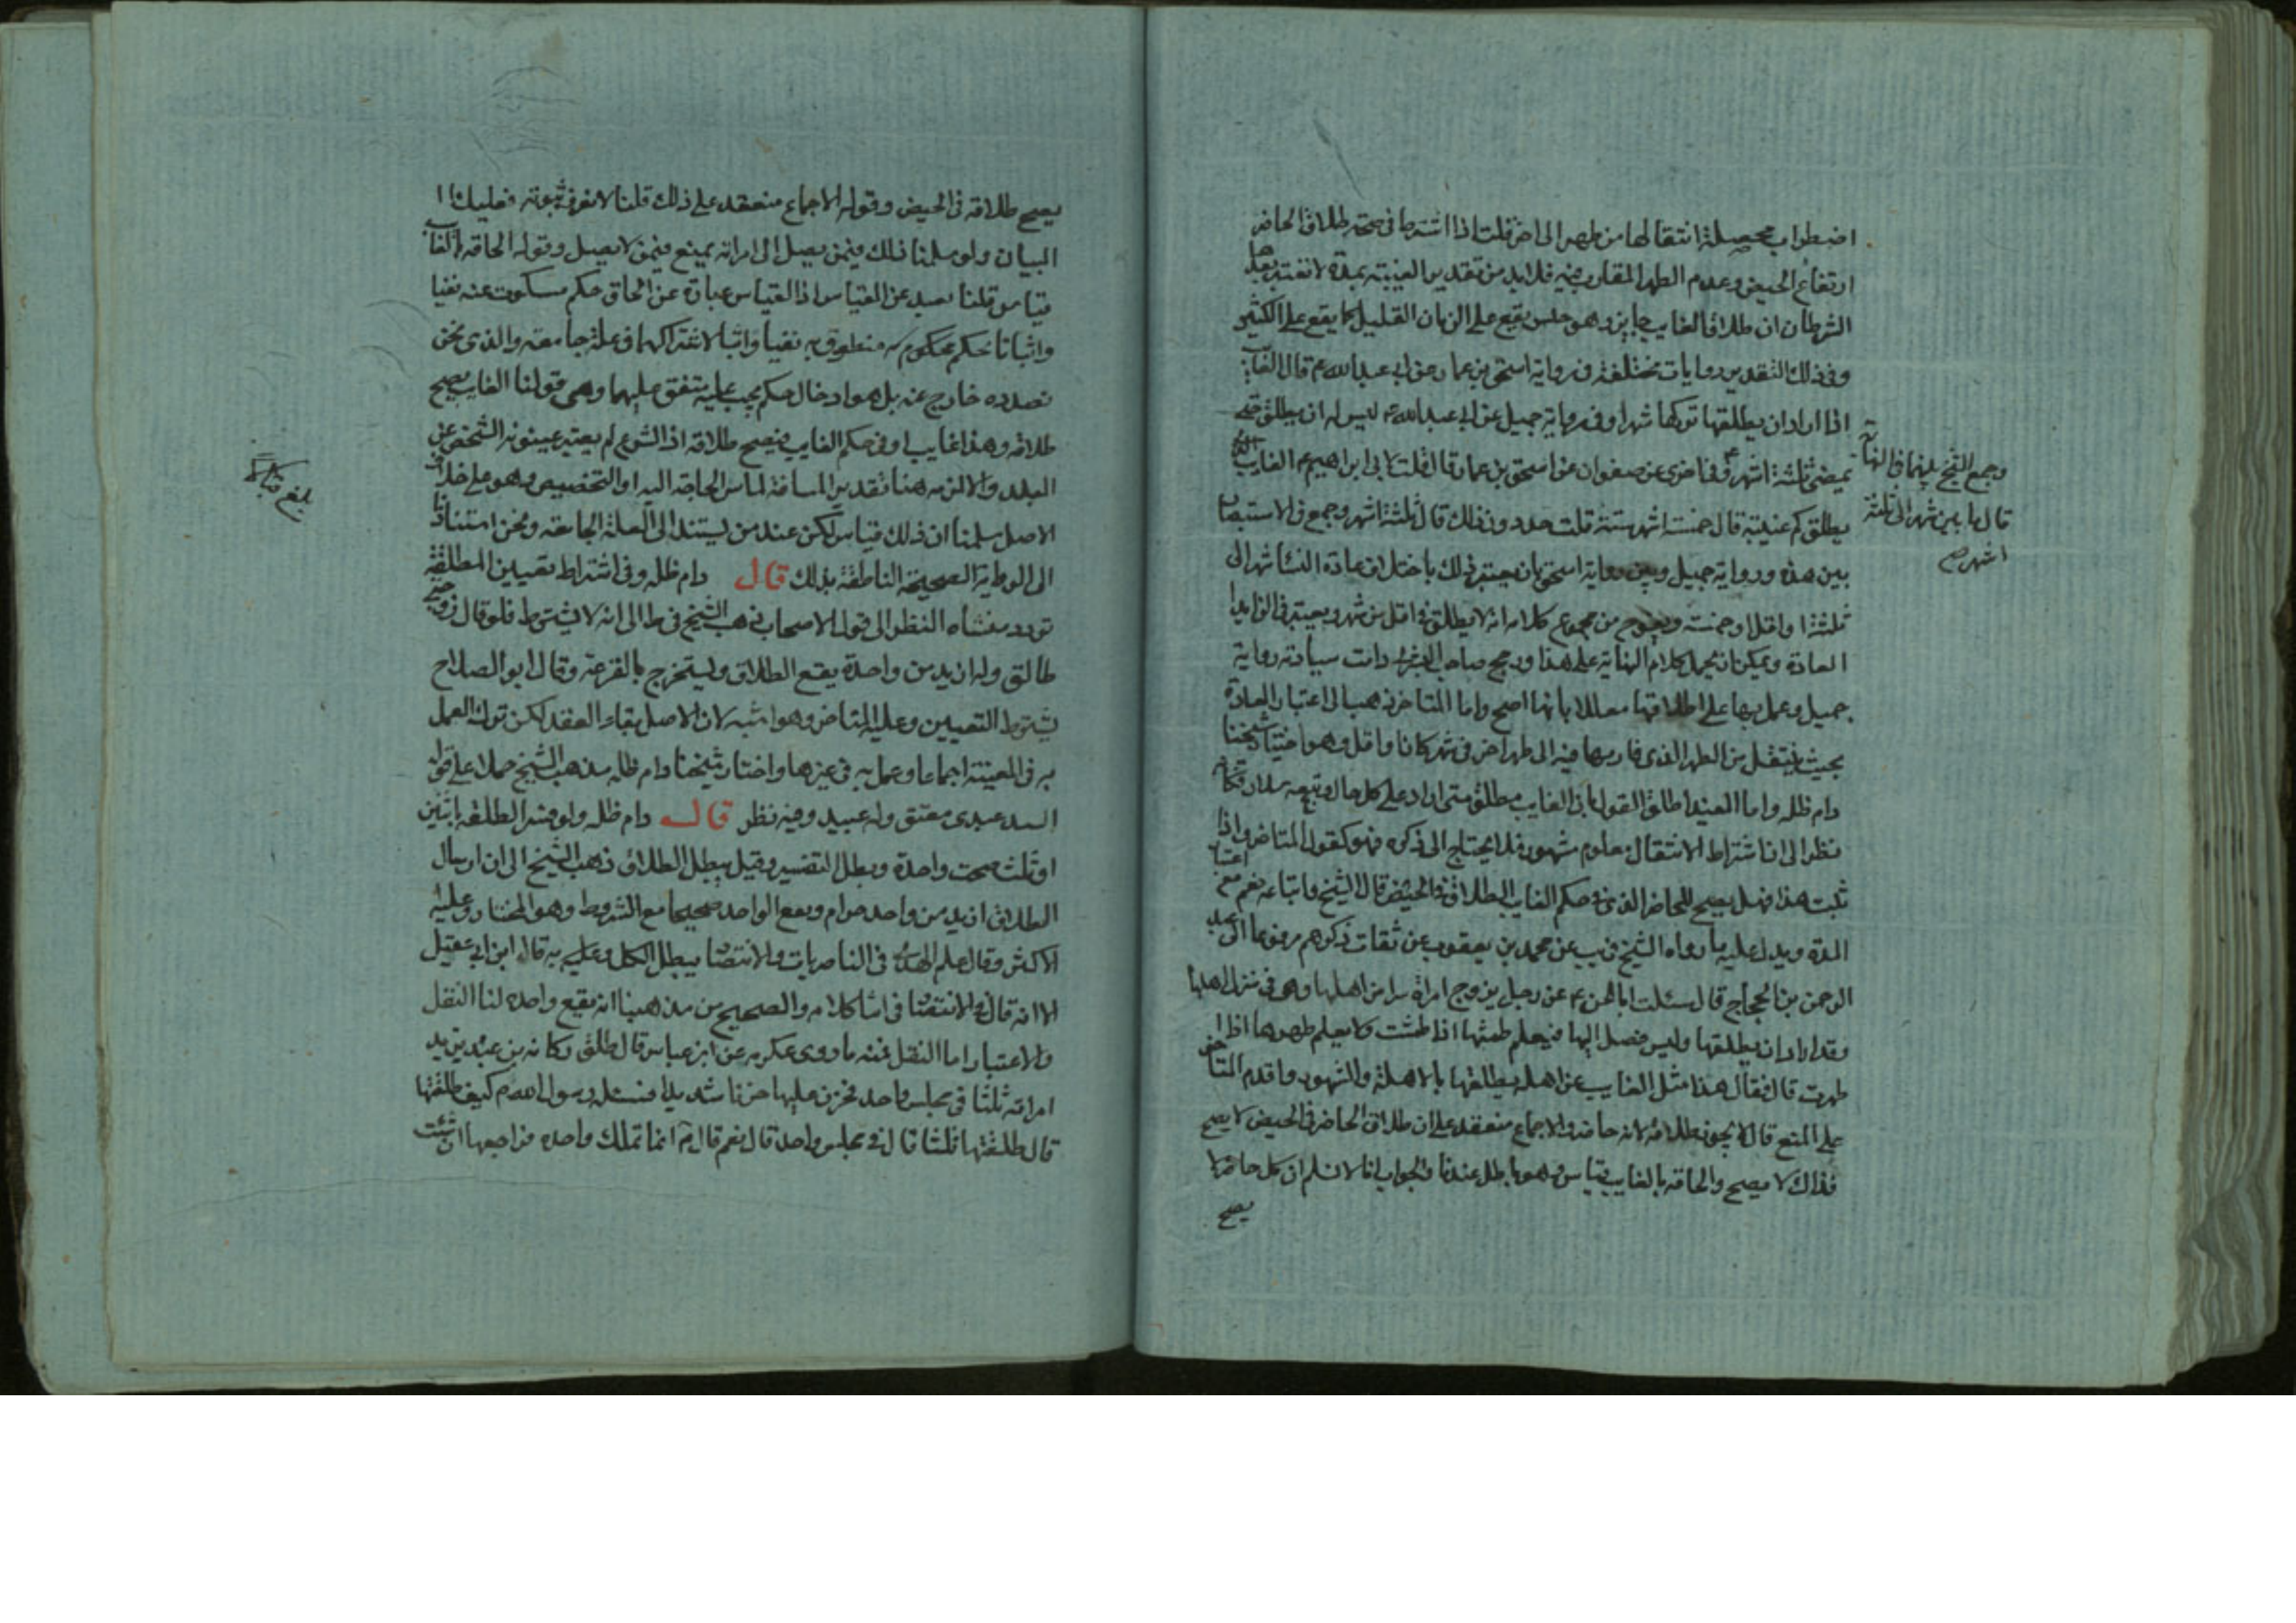 اضطراب محصلة انتقالها من طهر الى اخر قلت اذا اشترطنا فى صحته طلاق الحاضر
ارتفاع الحيض وعدم الطهر المقارب فيه فلابد من تقدير الغيبة بمدة لا تفتقد بعدها
الشرطان ان طلاق الغايب جايز وهو جلس يقع على الزمان القليل كما يقع على الكثير
وفى ذلك التقدير روايات مختلفة فى رواية اسحق بن عمار عن ابى عبد الله ع قال الغايب
اذا اراد ان يطلقها تركها شهرا وفى رواية جميل عن ابى عبد الله ع ليس له ان يطلق حتى
تمضى ثلثة اشهر وفى اخرى عن صفوان عن اسحق بن عمار قال قلت لابى ابراهيم ع الغايب الذى
يطلق كم غيبته قال خمسة اشهر ستة قلت حد دون ذلك قال ثلثة اشهر وجمع فى الاستبصار
بين هذه ورواية جميل وبين رواية اسحق بان يعتبر ذلك باختلاف عادة النساء شهر الى
ثلثة او اقل او خمسة ويلوح من مجموع كلامه انه لا يطلق فى اقل من شهر ويعتبر فى الزايد
العادة ويمكن ان يحمل كلام النهاية على هذا ورجح صاحب البشرى دامت سيادته رواية
جميل وعمل بها على اطلاقها معللا بانها اصح واما المتاخر فذهب الى اعتبار العادة
بحيث ينتقل من الطهر الذى قاربها فيه الى طهر اخر فى شهر كان او اقل وهو اختيار شيخنا
دام ظله واما المفيد اطلق القول بان الغايب مطلق متى اراد على كل حال وتبعه سلار فكانه
نظر الى ان اشتراط الانتقال معلوم مشهور فلا يحتاج الى ذكره فهو كقول المتاخر واذا
ثبت هذا فهل يصح للحاضر الذى فى حكم الغايب الطلاق فى الحيض قال الشيخ واتباعه نعم مع اعتبار
المدة ويدل عليه ما رواه الشيخ فى يب عن محمد بن يعقوب عن ثقات ذكرهم مرفوعا الى عبد
الرحمن بن الحجاج قال سئلت ابا الحسن ع عن رجل يزوج امراة سرا من اهلها وهى فى منزل اهلها
وقد اراد ان يطلقها وليس يصل اليها فيعلم طمثها اذا طمثت ولا يعلم طهرها اذا
طهرت قال فقال هذا مثل الغايب عن اهله يطلقها بالاهلة والشهور واقدم المتاخر
على المنع قال لا يجوز طلاقه لانه حاضر والاجماع منعقد على ان طلاق الحاضر فى الحيض لا يصح
فذاك لا يصح والحاقه بالغايب قياس وهو باطل عندنا والجواب انا لا نسلم ان كل حاضر لا
يصح
وجمع الشيخ بينهما فى النهاية
قال ما بين شهر الى ثلثة
اشهر صح
يصح طلاقه فى الحيض وقوله الاجماع منعقد على ذلك قلنا لا نعرف ثبوته فعليك
البيان ولو سلمنا ذلك فيمن يصل الى امراته يمنع فيمن لا يصل وقوله الحاقه بالغايب
قياس قلنا بعيد عن القياس اذ القياس عبارة عن الحاق حكم مسكوت عنه نفيا
واثباتا بحكم محكوم به منطوق به نفيا واثباتا لاشتراكهما فى علة جامعة والذى نحن
بصدده خارج عنه بل هو ادخال حكم يجب عليه متفق عليهما وهى قولنا الغايب يصح
طلاقه وهذا غايب او فى حكم الغايب فيصح طلاقه اذ الشرع لم يعتبر غيبوبة الشخص عن
البلد والا لزمه هنا تقدير المسافة لماس الحاجة اليه او التخصيص وهو على خلاف
الاصل سلمنا ان ذلك قياس لكن عند من يستند الى العلة الجامعه ونحن استنادنا
الى الرواية الصحيحة الناطقة بذلك قال دام ظله وفى اشتراط تعيين المطلقة
تردد منشاه النظر الى قول الاصحاب ذهب الشيخ فى ط الى انه لا يشترط فلو قال زوجتى
طالق وله ازيد من واحدة يقع الطلاق ويستخرج بالقرعة وقال ابو الصلاح
يشترط التعيين وعليه المتاخر وهو اشبه لان الاصل بقاء العقد لكن ترك العمل
به فى المعينة اجماعا وعمل به فى غيرها واختار شيخنا دام ظله مذهب الشيخ حملا على قول
السيد عبدى معتق وله عبيد وفيه نظر قال دام ظله ولو فسر الطلقه باثنين
او ثلث صحت واحدة وبطل التفسير وقيل يبطل الطلاق ذهب الشيخ الى ان ارسال
الطلاق ازيد من واحد حرام ويقع الواحد صحيحا مع الشروط وهو المختار وعليه
الاكثر وقال علم الهدى فى الناصريات والانتصار يبطل الكل وعليه به قال ابن ابى عقيل
الا انه قال فى الانتصار فى اثنا كلامه والصحيح من مذهبنا انه يقع واحده لنا النقل
والاعتبار اما النقل فمنه ما روى عكرمه عن ابن عباس قال طلق ركانه بن عبد يزيد
امراته ثلثا فى مجلس واحد فحزن عليها حزنا شديدا فسئله رسول الله ص كيف طلقتها
قال طلقتها ثلثا قال فى مجلس واحد قال نعم قال ع انما تملك واحده فراجعها ان شئت
بلغ قبالا